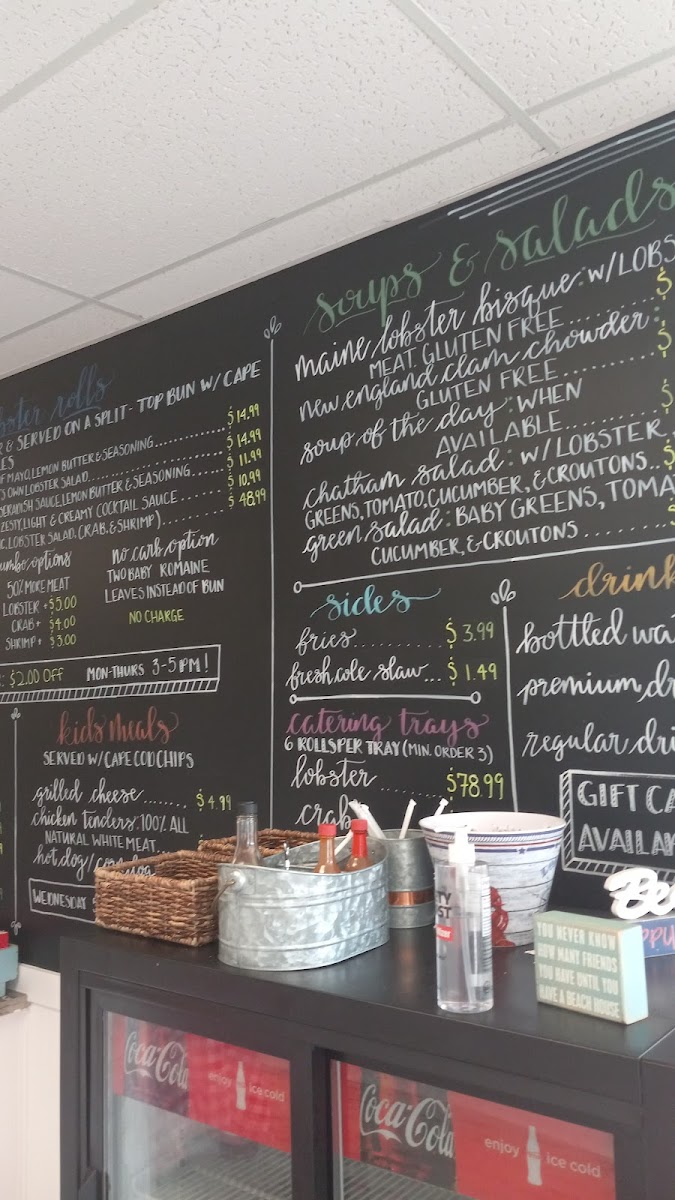 lobster rolls
& SERVED ON A SPLIT-TOP BUN W/ CAPE
$14.99
OF MAYO, LEMON BUTTER & SEASONING $14.99
OWN LOBSTER SALAD $11.99
SAUCE, LEMON BUTTER & SEASONING $10.99
ZESTY, LIGHT & CREAMY COCKTAIL SAUCE
LOBSTER SALAD, CRAB, & SHRIMP) $48.99
options
50% MORE MEAT
LOBSTER + $5.00
CRAB + $4.00
SHRIMP + $3.00
No carb option
TWO BABY ROMAINE
LEAVES INSTEAD OF BUN
NO CHARGE
$2.00 OFF MON-THURS 3-5PM!
kids meals
SERVED W/ CAPE COD CHIPS
grilled cheese ...... $4.99
chicken tenders: 100% ALL
NATURAL WHITE MEAT..
hot dog/
WEDNESDAY
soups & salads
maine lobster bisque: W/ LOBS
MEAT. GLUTEN FREE ........ $
new england clam chowder:
GLUTEN FREE........ $
soup of the day: WHEN
AVAILABLE........ $
chatham salad: W/ LOBSTER
GREENS, TOMATO, CUCUMBER, & CROUTONS.. $
green salad: BABY GREENS, TOMA
CUCUMBER, & CROUTONS ........ $
sides
fries........ $3.99
fresh cole slaw... $1.49
catering trays
6 ROLLS PER TRAY (MIN. ORDER 3)
lobster ........ $78.99
crab
drink
bottled wa
premium dr
regular dri
GIFT CA
AVAILA
YOU NEVER KNOW
HOW MANY FRIENDS
YOU HAVE UNTIL YOU
HAVE A BEACH HOUSE
Coca-Cola
enjoy ice cold
Coca-Cola
enjoy ice cold